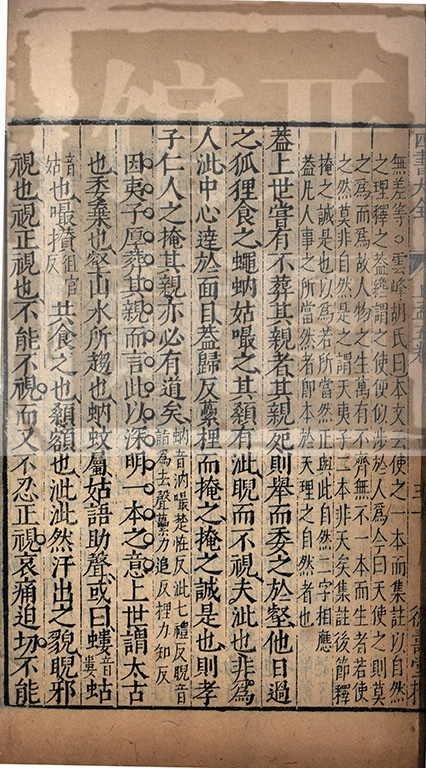 無差等○雲峰胡氏曰本文云使之一本而集註以自然
之理釋之蓋纔謂之使便似涉於人為今曰天使之則莫
之為而為故人物之生萬有不齊無不一本而生者若使
之然莫非自然是之謂天夷子二本非天矣集註後節釋
掩之誠是也以為若所當然正與此自然二字相應
蓋凡人事之所當然者即本於天理之自然者也
蓋上世嘗有不葬其親者其親死則舉而委之於壑他日過
之狐狸食之蠅蚋姑嘬之其顙有泚睨而不視夫泚也非為
人泚中心達於面目蓋歸反虆梩而掩之掩之誠是也則孝
子仁人之掩其親亦必有道矣
蚋音汭嘬楚怪反泚七禮反睨音
詣為去聲虆力追反梩力知反
因夷子厚葬其親而言此以深明一本之意上世謂太古
也委棄也壑山水所趨也蚋蚊屬姑語助聲或曰螻
音婁
蛄
音姑
也嘬攢
徂官反
共食之也顙額也泚泚然汗出之貌睨邪
視也視正視也不能不視而又不忍正視哀痛迫切不能
四書大全